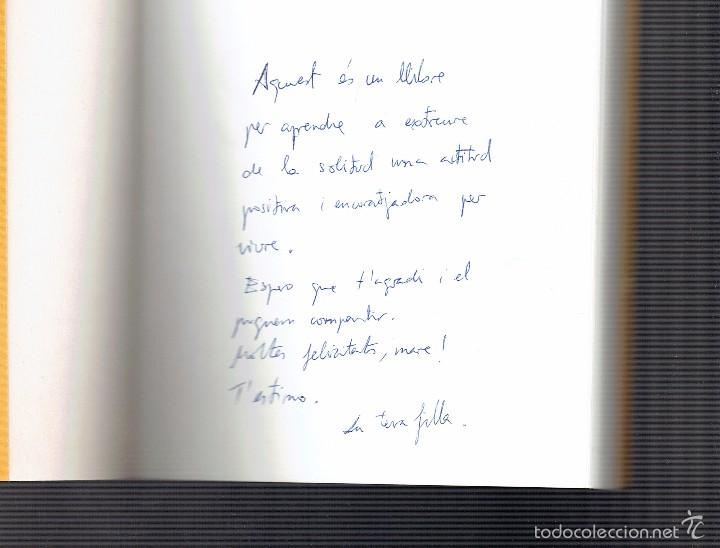 Aquest és un llibre
per aprendre a extreure
de la solitud una actitud
positiva i encoratjadora per
viure.
Espero que t'agradi i el
puguem compartir.
Moltes felicitats, mare!
T'estimo.
La teva filla.
todocoleccion.net